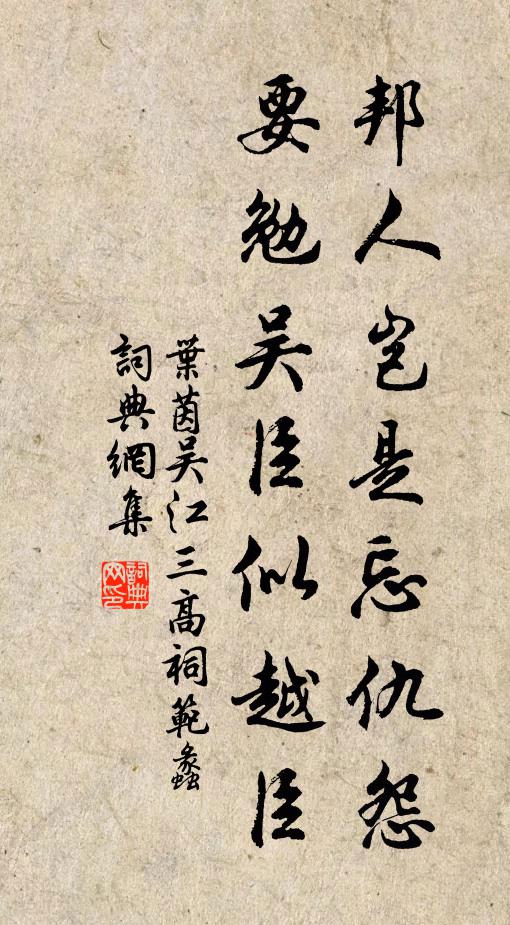 邦人岂是忘仇怨
要勉吴臣似越臣
葉茵吴江三高祠範蠡
詞典網集
詞典网印